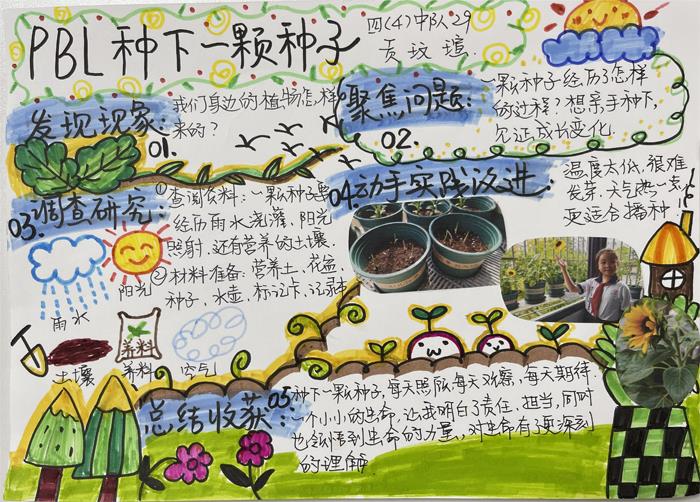 PBL 种下一颗种子
四(4)中队29
贡玟瑄
发现现象:
01.
我们身边的植物怎样
来的?
聚焦问题:
02.
一颗种子经历了怎样
的过程?想亲手种下,
见证成长变化.
03.调查研究:
①查阅资料:一颗种子要
经历雨水浇灌、阳光
照射,还有营养的土壤.
②材料准备:营养土、花盆
种子、水壶、标记卡、记录本
雨水
阳光
土壤
养料
养料
空气
04.动手实践改进:
温度太低,很难
发芽.天气热一点,
更适合播种.
总结收获:
05.
种下一颗种子,每天照顾,每天观察,每天期待.
一个小小的生命,让我明白了责任、担当,同时
也领悟到生命的力量,对生命有了更深刻
的理解